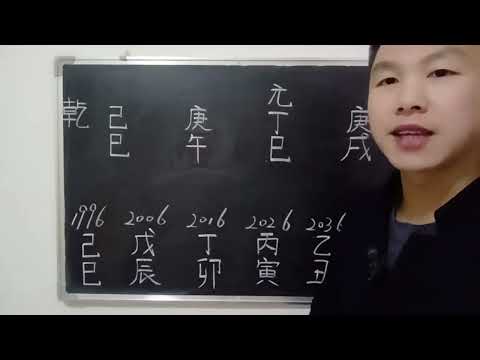 乾 己巳 庚午 元丁巳 庚戌
1996 2006 2016 2026 2036
己巳 戊辰 丁卯 丙寅 乙丑